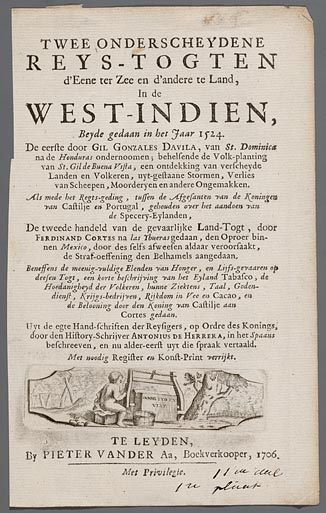 TWEE ONDERSCHEYDENE
REYS-TOGTEN
d'Eene ter Zee en d'andere te Land,
In de
WEST-INDIEN,
Beyde gedaan in het Jaar 1524.
De eerste door GIL GONZALES DAVILA, van St. Dominica
na de Honduras ondernoomen; behelsende de Volk-planting
van St. Gil de Buena Vista, een ontdekking van verscheyde
Landen en Volkeren, uyt-gestaane Stormen, Verlies
van Scheepen, Moorderyen en andere Ongemakken.
Als mede het Regts-geding, tussen de Afgesanten van de Koningen
van Castilje en Portugal, gehouden over het aandoen van
de Specery-Eylanden,
De tweede handeld van de gevaarlijke Land-Togt, door
FERDINAND CORTES na las Ybueras gedaan, den Oproer bin-
nen Mexico, door des selfs afweesen aldaar veroorsaakt,
de Straf-oeffening den Belhamels aangedaan.
Beneffens de meenig-vuldige Elenden van Honger, en Lijfs-gevaaren op
desen Togt, een korte beschrijving van het Eyland Tabasco, de
Hoedanigheyd der Volkeren, hunne Ziektens, Taal, Goden-
dienst, Krijgs-bedrijven, Rijkdom in Vee en Cacao, en
de Belooning door den Koning van Castilje aan
Cortes gedaan.
Uyt de egte Hand-schriften der Reysigers, op Ordre des Konings,
door den History-Schrijver ANTONIUS DE HERRERA, in het Spaans
beschreeven, en nu alder-eerst uyt die spraak vertaald.
Met noodig Register en Konst-Print verrijkt.
TE LEYDEN,
By PIETER VANDER Aa, Boekverkooper, 1706.
Met Privilegie.